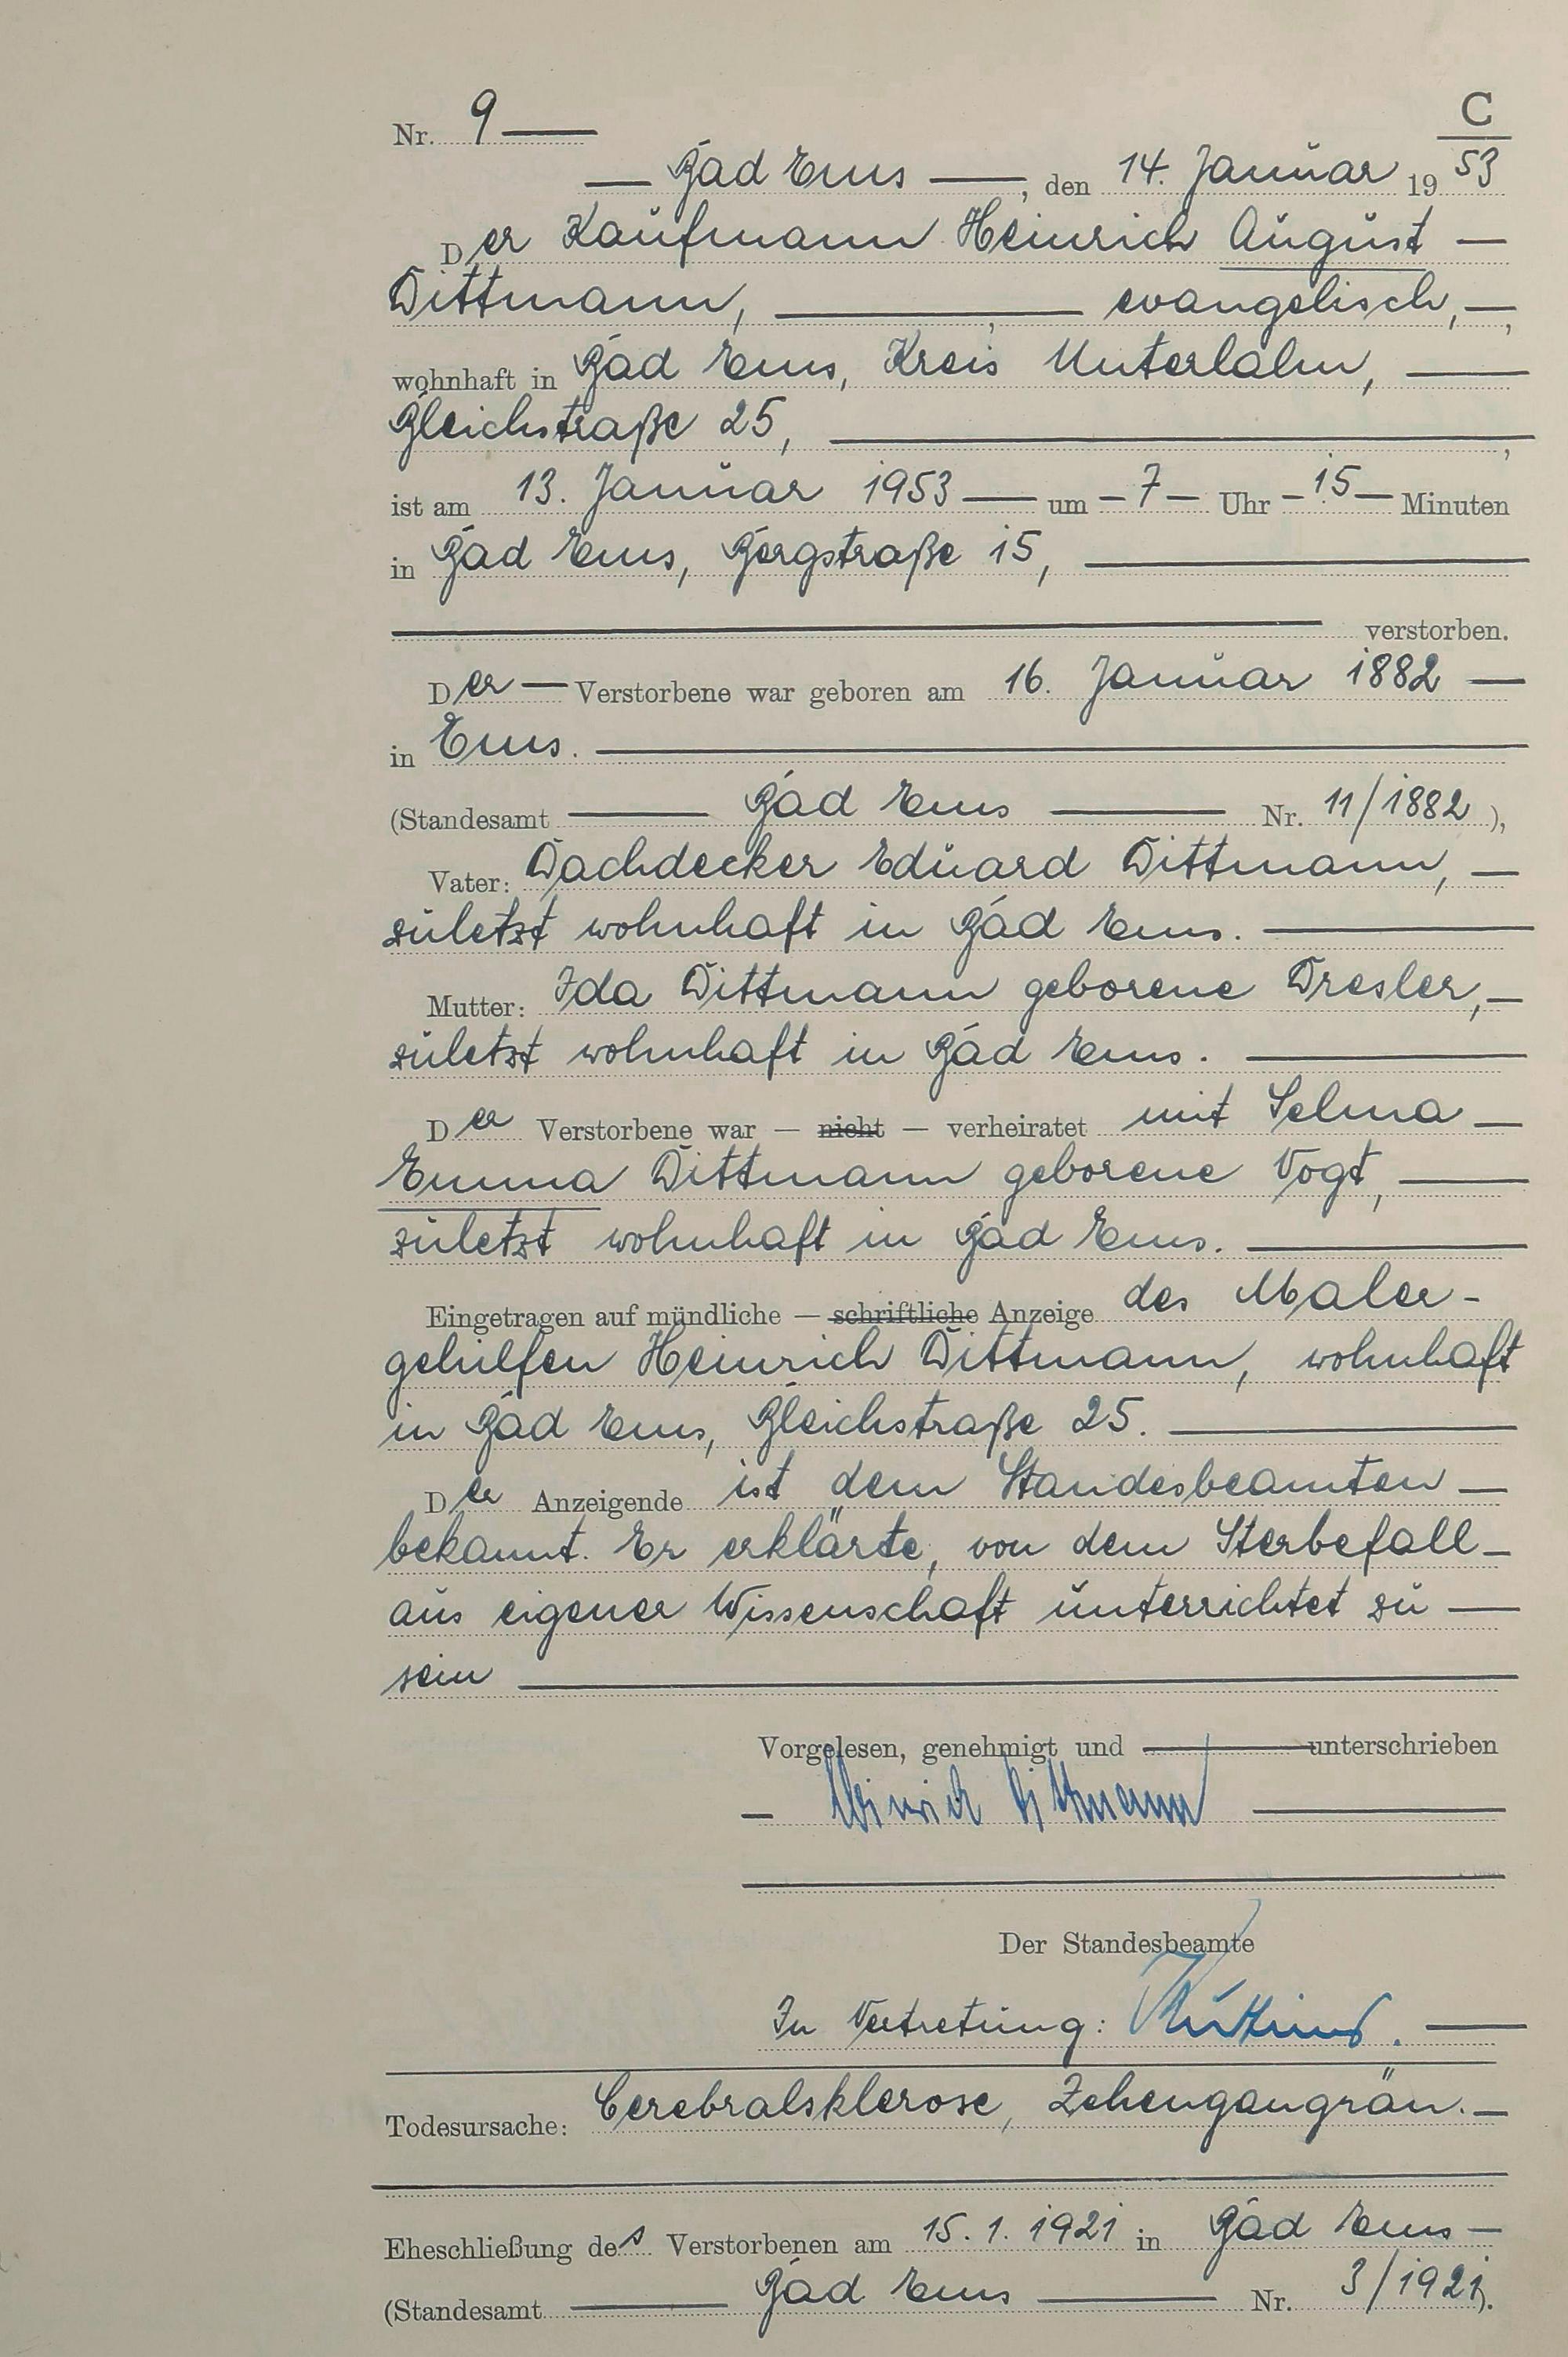 C
Nr. 9 —
— Bad Ems —, den 14. Januar 1953
Der Kaufmann Heinrich August —
Dittmann, — , — evangelisch, —,
wohnhaft in Bad Ems, Kreis Unterlahn, —
Bleichstraße 25, —,
ist am 13. Januar 1953 — um — 7 — Uhr — 15 — Minuten
in Bad Ems, Bergstraße 15, —
— verstorben.
Der — Verstorbene war geboren am 16. Januar 1882 —
in Ems. —
(Standesamt — Bad Ems — Nr. 11/1882),
Vater: Dachdecker Eduard Dittmann, —
zuletzt wohnhaft in Bad Ems. —
Mutter: Ida Dittmann geborene Dresler, —
zuletzt wohnhaft in Bad Ems. —
Der Verstorbene war — nicht — verheiratet mit Selma —
Emma Dittmann geborene Vogt, —
zuletzt wohnhaft in Bad Ems. —
Eingetragen auf mündliche — schriftliche Anzeige des Maler-
gehilfen Heinrich Dittmann, wohnhaft
in Bad Ems, Bleichstraße 25. —
Der Anzeigende ist dem Standesbeamten —
bekannt. Er erklärte, von dem Sterbefall —
aus eigener Wissenschaft unterrichtet zu —
sein —
Vorgelesen, genehmigt und — unterschrieben
— Heinrich Dittmann —
Der Standesbeamte
In Vertretung: —
Todesursache: Cerebralsklerose, Zehengangrän. —
Eheschließung des Verstorbenen am 15. 1. 1921 in Bad Ems —
(Standesamt — Bad Ems — Nr. 3/1921).